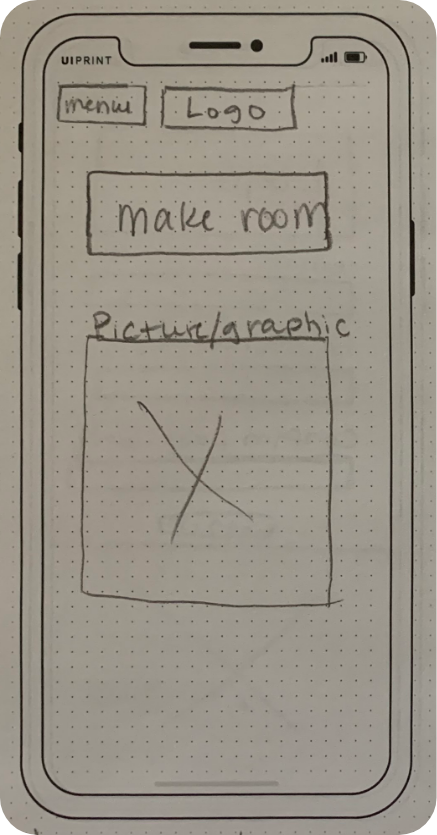 UIPRINT
menu Logo
make room
Picture/graphic